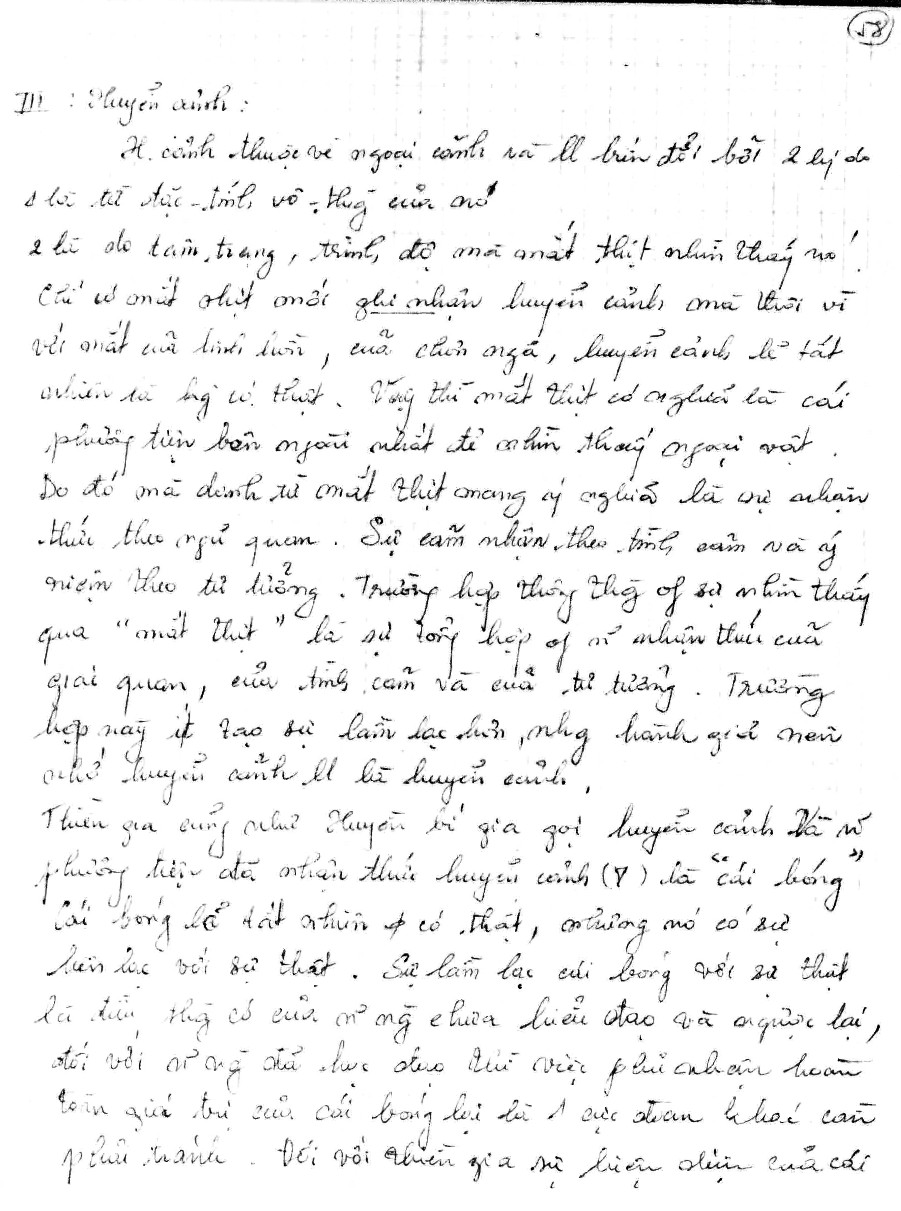 58
III : Huyển cảnh :
H. cảnh thuộc về ngoại cảnh và luôn biến đổi bởi 2 lý do
1 là từ đặc-tính vô-thg̃ của nó
2 là do tâm trạng, trình độ mà mắt thịt nhìn thấy nó.
Chỉ có mắt thịt mới ghi nhận huyển cảnh mà thôi vì
với mắt của linh hồn, của chơn ngã, huyển cảnh lẽ tất
nhiên là kg có thật. Vậy thì mắt thịt có nghĩa là cái
phương tiện bên ngoài nhất để nhìn thấy ngoại vật.
Do đó mà danh từ mắt thịt mang ý nghĩa là sự nhận
thức theo ngũ quan. Sự cảm nhận theo tình cảm và ý
niệm theo tư tưởng. Trường hợp thông thg̃ of sự nhìn thấy
qua "mắt thịt" là sự tổng hợp of nhận thức của
giai quan, của tình cảm và của tư tưởng. Trường
hợp này ít tạo sự lầm lạc hơn, nhg hành giả nên
nhớ huyển cảnh là huyển cảnh,
Thiền gia cũng như Huyền bí gia gọi huyển cảnh và
phương tiện đã nhận thức huyển cảnh là "cái bóng"
Cái bóng lẽ tất nhiên có thật, nhưng nó có sự
liên lạc với sự thật. Sự lầm lạc cái bóng với sự thật
là điều thg̃ có của ng̃ chưa hiểu đạo và ngược lại,
đối với ng̃ đã học đạo thì việc phủ nhận hoàn
toàn giá trị của cái bóng lại là 1 cực đoan khác cần
phải tránh. Đối với thiền gia sự hiện diện của cái